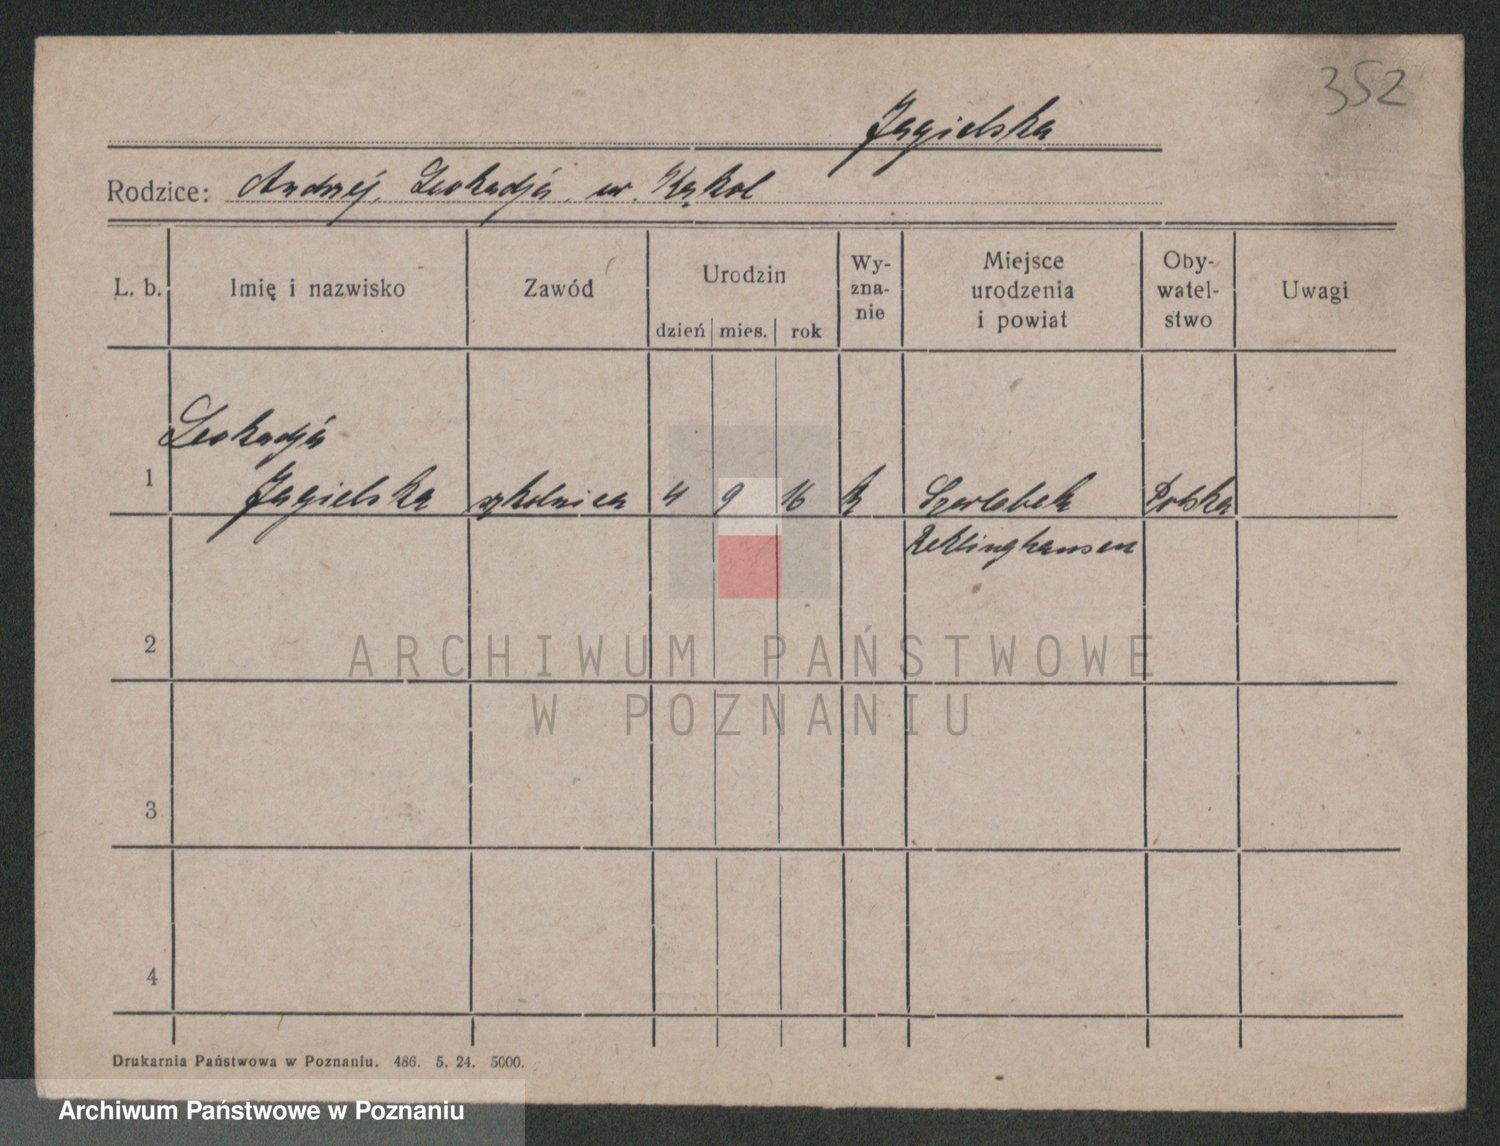 352
Jagielska
Rodzice: Andrzej, Leokadja, ur. Kąkol
L. b. Imię i nazwisko Zawód Urodzin dzień mies. rok Wy-
zna-
nie Miejsce
urodzenia
i powiat Oby-
watel-
stwo Uwagi
Leokadja
1 Jagielska szkolnica 4 9 16 k Szerlebek Polska
Reklinghausen
2
ARCHIWUM PAŃSTWOWE
W POZNANIU
3
4
Drukarnia Państwowa w Poznaniu. 486. 5. 24. 5000.
Archiwum Państwowe w Poznaniu